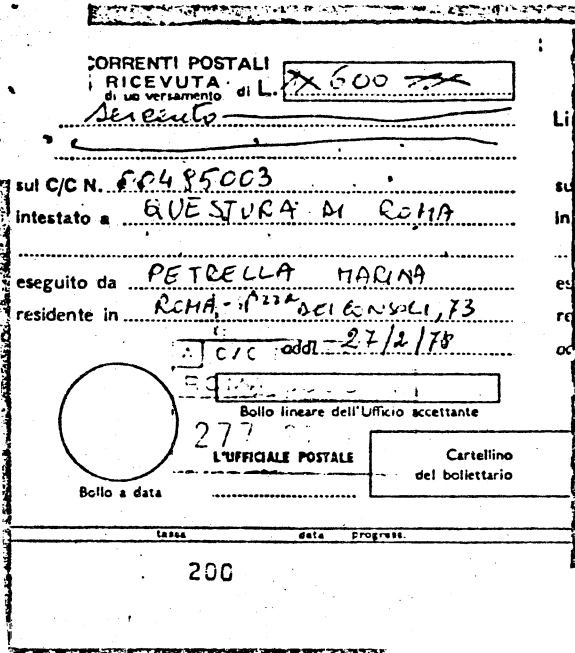 CORRENTI POSTALI
RICEVUTA
di un versamento di L. 600
seicento
Li
sul C/C N. 00495003
su
intestato a QUESTURA DI ROMA
in
eseguito da PETRELLA MARINA
es
residente in ROMA - P.zza DEI CONSOLI, 73
re
addì 27/2/78
A C/C
Bollo lineare dell'Ufficio accettante
277
L'UFFICIALE POSTALE
Cartellino
del bollettario
Bollo a data
tassa data progress.
200